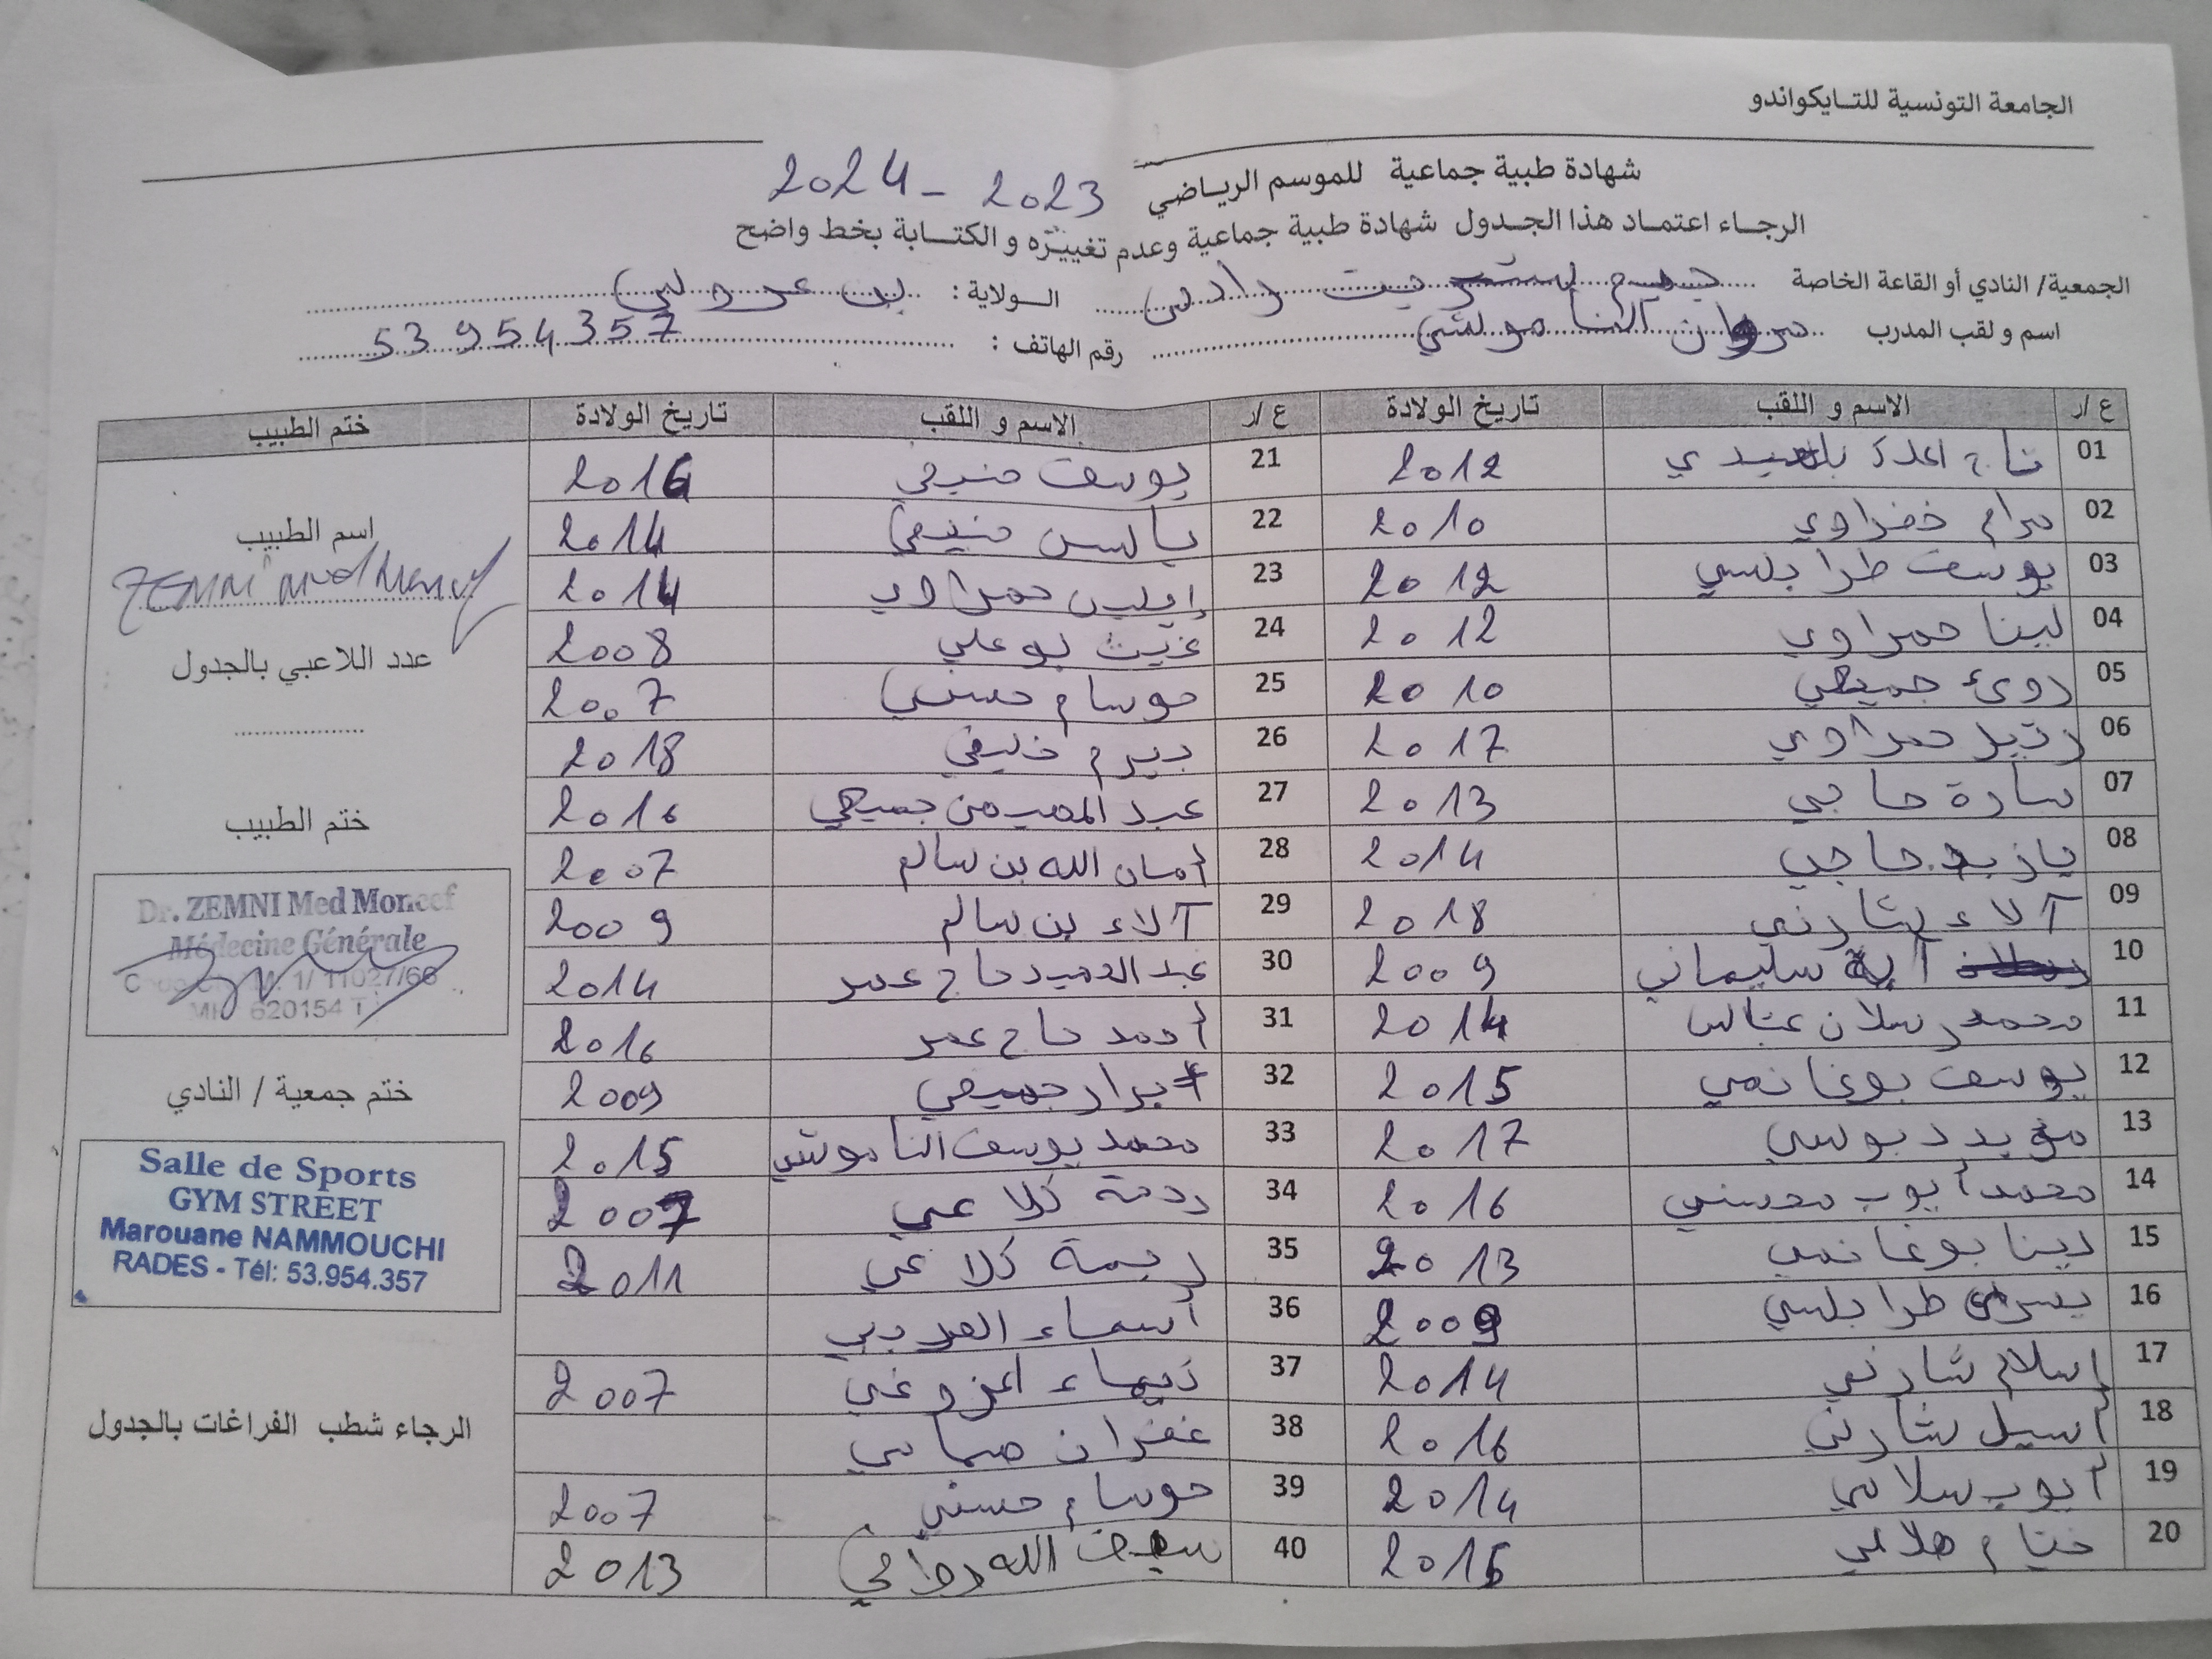 الجامعة التونسية للتايكواندو
شهادة طبية جماعية للموسم الرياضي 2023 - 2024
الرجاء اعتماد هذا الجدول شهادة طبية جماعية وعدم تغييره و الكتابة بخط واضح
الجمعية/ النادي أو القاعة الخاصة جيم ستريت رادس الولاية : بن عروس
اسم و لقب المدرب مروان الناموشي رقم الهاتف : 53954357
ع/ر الاسم و اللقب تاريخ الولادة ع/ر الاسم و اللقب تاريخ الولادة ختم الطبيب
01 2012 21 يوسف 2016
02 مرام خضراوي 2010 22 2014
03 يوسف طرابلسي 2012 23 حمراوي 2014
04 لينا حمراوي 2012 24 غيث بوعلي 2008
05 جميعي 2010 25 حوسام حسني 2007
06 حمراوي 2017 26 بيرم خليفي 2018
07 سارة حاجي 2013 27 عبد المهيمن جميعي 2016
08 يازيد حاجي 2014 28 أمان الله بن سالم 2007
09 آلاء شارني 2018 29 آلاء بن سالم 2009
10 آية سليماني 2009 30 عبد الحميد حاج عمر 2014
11 محمد رسلان 2014 31 أحمد حاج عمر 2016
12 يوسف بوغانمي 2015 32 أبرار جميعي 2009
13 مؤيد دبوسي 2017 33 محمد يوسف الناموشي 2015
14 محمد أيوب محسني 2016 34 رحمة كلاعي 2007
15 دينا بوغانمي 2013 35 ريمة كلاعي 2011
16 يسرى طرابلسي 2009 36 أسماء
17 إسلام شارني 2014 37 2007
18 أسيل شارني 2016 38 غفران
19 أيوب سلامي 2014 39 حوسام حسني 2007
20 ختام هلالي 2015 40 سيف الله 2013
اسم الطبيب
ZEMNI Med Moncef
عدد اللاعبي بالجدول
ختم الطبيب
Dr. ZEMNI Med Moncef
Médecine Générale
1/ 11027/66
620154 T
ختم جمعية / النادي
Salle de Sports
GYM STREET
Marouane NAMMOUCHI
RADES - Tél: 53.954.357
الرجاء شطب الفراغات بالجدول